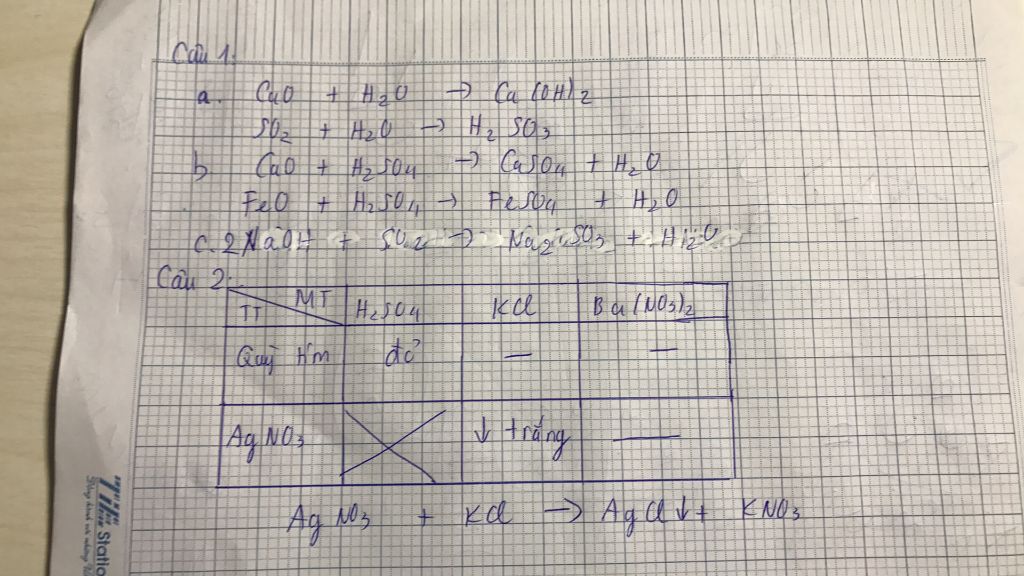 Câu 1:
a. CaO + H2O → Ca(OH)2
SO2 + H2O → H2SO3
b CaO + H2SO4 → CaSO4 + H2O
FeO + H2SO4 → FeSO4 + H2O
c. 2NaOH + SO2 → Na2SO3 + H2O
Câu 2:
TT MT H2SO4 KCl Ba(NO3)2
Quỳ tím đỏ — —
AgNO3 ↓ trắng —
AgNO3 + KCl → AgCl↓ + KNO3
Station